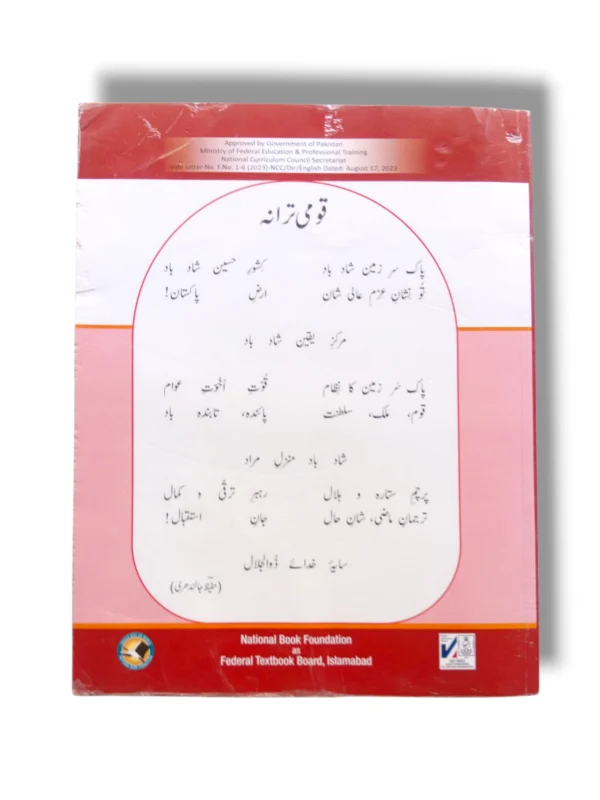 Approved by Government of Pakistan
Ministry of Federal Education & Professional Training
National Curriculum Council Secretariat
vide Letter No. F.No. 1-6 (2023)-NCC/Dir/English Dated: August 17, 2023
قومی ترانہ
پاک سر زمین شاد باد کِشورِ حسین شاد باد
تُو نِشانِ عزمِ عالی شان ارضِ پاکستان!
مرکزِ یقین شاد باد
پاک سَر زمین کا نِظام قُوّتِ اُخُوّتِ عوام
قوم، ملک، سلطنت پائندہ، تابندہ باد
شاد باد منزلِ مراد
پرچمِ ستارہ و ہلال رہبرِ ترقّی و کمال
ترجمانِ ماضی، شانِ حال جانِ استقبال!
سایۂ خدائے ذُوالجلال
(حفیظؔ جالندھری)
National Book Foundation
as
Federal Textbook Board, Islamabad